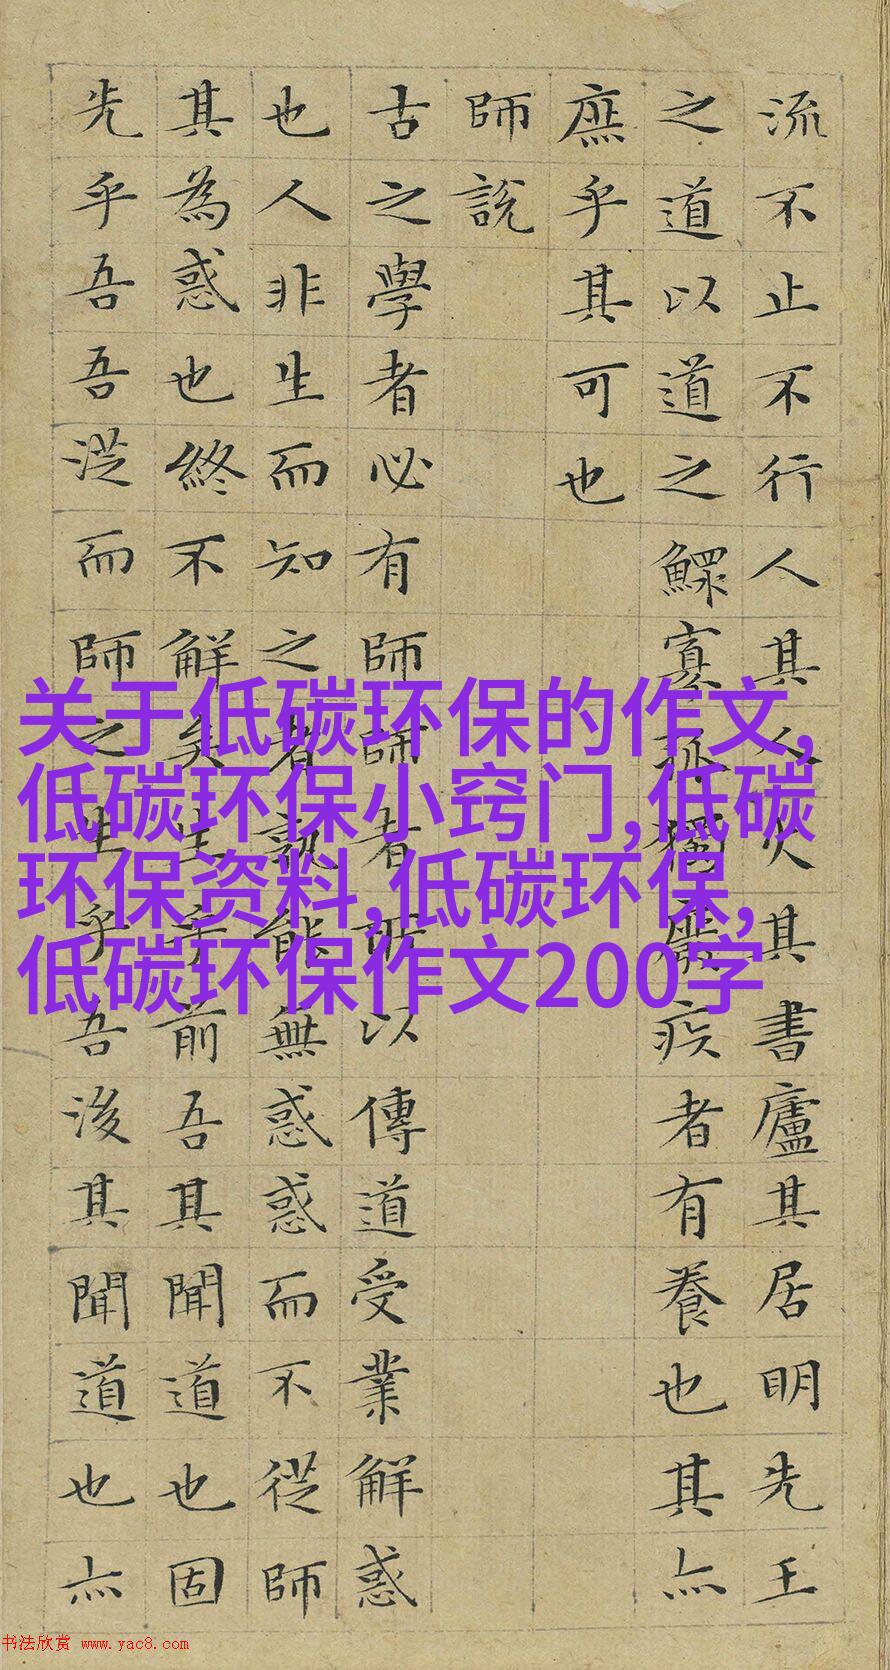 流不止不行人其人火其書廬其居明先王
之道以道之鰥寡孤獨廢疾者有養也其亦
庶乎其可也
師說
古之學者必有師師者所以傳道受業解惑
也人非生而知之者孰能無惑惑而不從師
其為惑也終不解矣生乎前吾其聞道也固
先乎吾吾從而師之生乎吾後其聞道也亦
关于低碳环保的作文,
低碳环保小窍门,低碳
环保资料,低碳环保,
低碳环保作文200字
书法欣赏 www.yac8.com